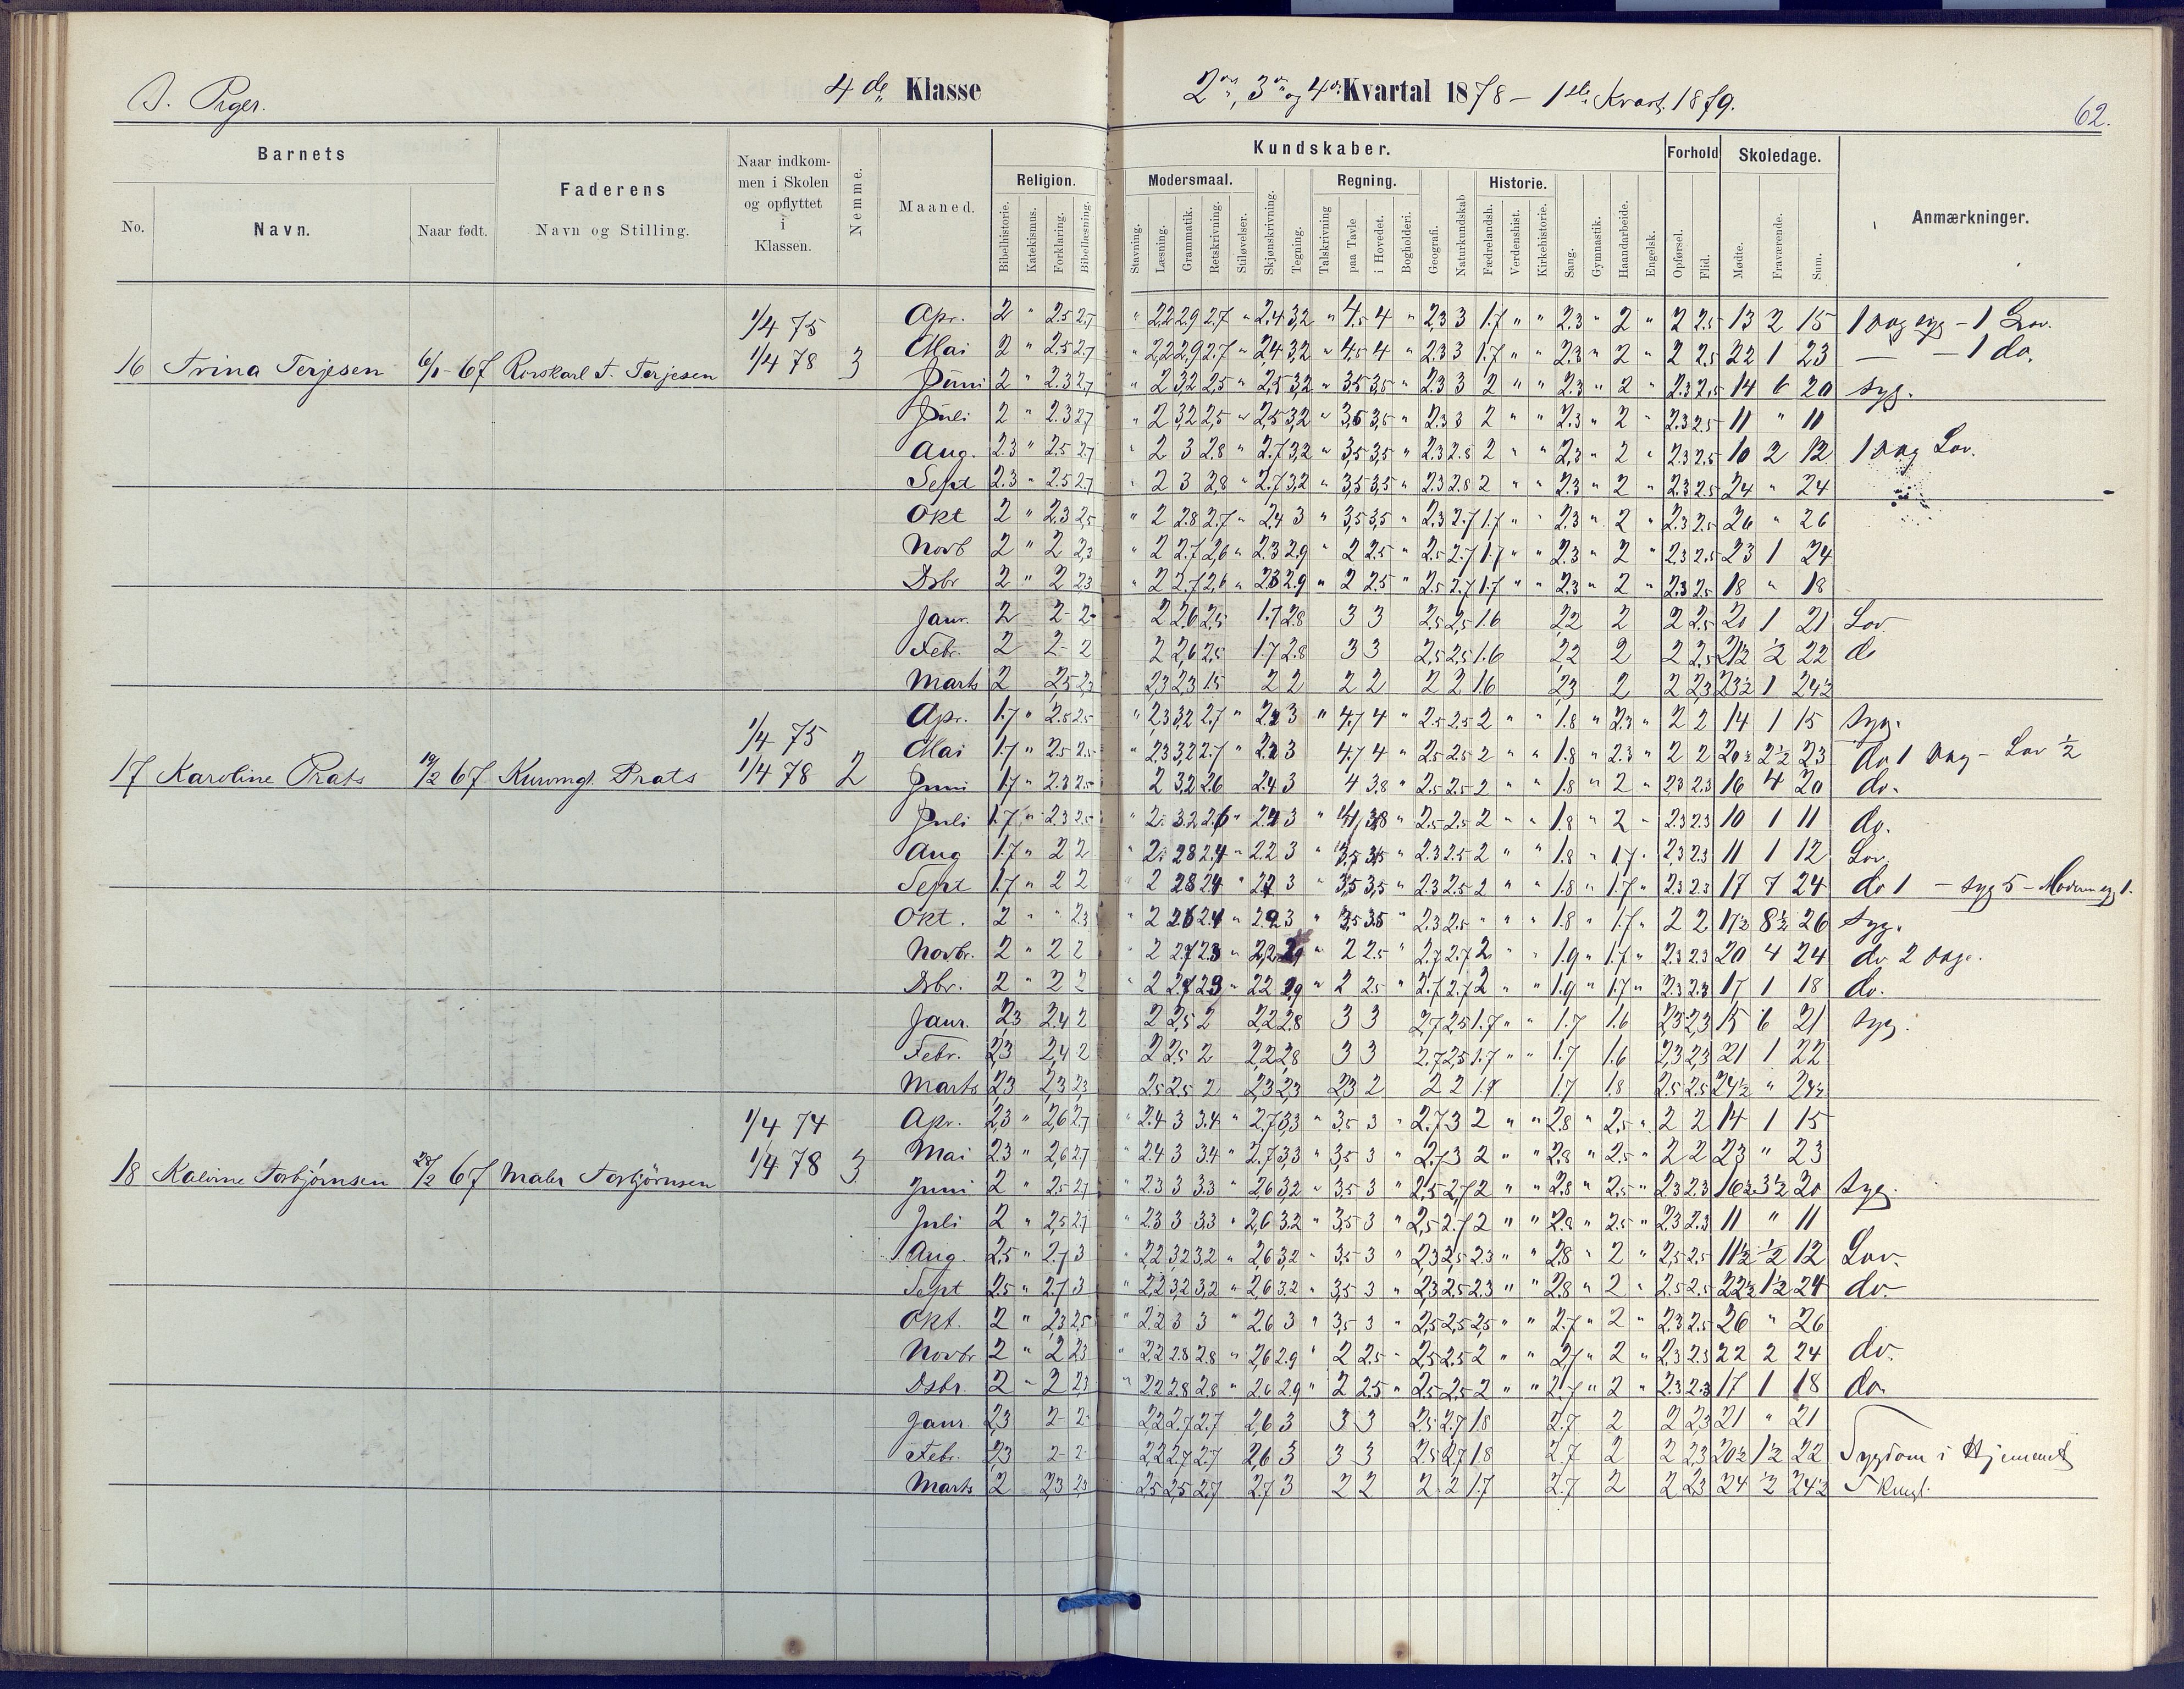 4de Klasse
2den, 3die og 4de Kvartal 1878 – 1ste Kvart. 1879.
62.
Barnets
No.
Navn.
Naar født.
Faderens
Navn og Stilling.
Naar indkom-
men i Skolen
og opflyttet
i
Klassen.
Nemme.
Maaned.
Kundskaber.
Religion.
Bibelhistorie.
Katekismus.
Forklaring.
Bibellæsning.
Modersmaal.
Stavning.
Læsning.
Grammatik.
Retskrivning.
Stiløvelser.
Skjønskrivning.
Tegning.
Regning.
Talskrivning
paa Tavle
i Hovedet.
Bogholderi.
Geografi.
Naturkundskab
Historie.
Fædrelandsh.
Verdenshist.
Kirkehistorie.
Sang.
Gymnastik.
Haandarbeide.
Engelsk.
Forhold
Opførsel.
Flid.
Skoledage.
Mødte.
Fraværende.
Sum.
Anmærkninger.
1/4 75 Apr. 2 " 2.5 2.7 " 2.2 2.9 2.7 " 2.4 3,2 " 4.5 4 " 2.3 3 1.7 " " 2.3 " 2 " 2 2.5 13 2 15
16 Trina Terjesen 6/1 67 T. Terjesen 1/4 78 3 Mai 2 " 2.5 2.7 " 2,2 2,9 2.7 " 2.4 3.2 " 4.5 4 " 2.3 3 1.7 " " 2.3 " 2 " 2 2.5 22 1 23 — – 1 do.
Juni 2 " 2.3 2.7 " 2 3.2 2.5 " 2.5 3.2 " 3.5 3.5 " 2.3 3 2 " " 2.3 " 2 " 2.3 2.5 14 6 20 syg.
Juli 2 " 2.3 2.7 " 2 3.2 2,5 " 2,5 3,2 " 3,5 3,5 " 2.3 3 2 " " 2.3 " 2 " 2.3 2.5 11 " 11
Aug. 2.3 " 2.5 2.7 " 2 3 2.8 " 2.7 3,2 " 3,5 3,5 " 2.3 2.8 2 " " 2,3 " 2 " 2.3 2.5 10 2 12 1 Dag Lov.
Sept 2.3 " 2.5 2.7 " 2 3 2,8 " 2.7 3,2 " 3,5 3,5 " 2.3 2.8 2 " " 2.3 " 2 " 2.3 2.5 24 " 24
Okt 2 " 2.3 2.5 " 2 2.8 2.7 " 2.4 3 " 3,5 3,5 " 2.3 2.7 1.7 " " 2.3 " 2 " 2.3 2.5 26 " 26
Novb 2 " 2 2,3 " 2 2.7 2,6 " 2.3 2.9 " 2 2.5 " 2.5 2.7 1.7 " " 2.3 " 2 " 2,3 2.5 23 1 24
Dsbr 2 " 2 2.3 " 2 2.7 2.6 " 2.3 2.9 " 2 2.5 " 2.5 2.7 1.7 " " 2.3 " 2 " 2.3 2.5 18 " 18
Janr. 2 2 2 2 2.6 2.5 1.7 2.8 3 3 2.5 2,5 1.6 2,2 2 2 2.5 20 1 21 Lov
Febr. 2 2 2 2 2,6 2.5 1.7 2.8 3 3 2,5 2.5 1.6 2,2 2 2 2,5 21½ ½ 22 do
Marts 2 2.5 2.3 2,3 2,3 1.5 2 2 2 2 2 2 1.6 2,3 2 2 2,3 23½ 1 24½
1/4 75 Apr. 1.7 " 2.5 2.5 " 2,3 3,2 2.7 " 2.2 3 " 4.7 4 " 2.5 2.5 2 " " 1.8 " 2.3 " 2 2 14 1 15 syg.
17 Karoline Prats 19/2 67 Prats 1/4 78 2 Mai 1.7 " 2.5 2.5 " 2.3 3.2 2.7 " 2.2 3 4.7 4 " 2.5 2.5 2 " " 1.8 " 2.3 " 2 2 20½ 2½ 23 do 1 Dag – Lov ½
Juni 1.7 " 2.3 2.5 2 3.2 2.6 2.4 3 4 3.8 " 2.5 2.5 2 " " 1.8 " 2 " 2.3 2.3 16 4 20 do.
Juli 1.7 " 2.3 2.5 " 2 3.2 2.6 " 2.2 3 " 4 3.8 " 2.5 2.5 2 " " 1.8 " 2 " 2.3 2.3 10 1 11 do.
Aug 1.7 " 2 2 " 2 2.8 2.4 " 2.2 3 " 3.5 3.5 " 2.3 2.5 2 " " 1.8 " 1.7 " 2,3 2.3 11 1 12 Lov
Sept 1.7 " 2 2 " 2 2.8 2.4 " 2.2 3 " 3,5 3,5 " 2.3 2.5 2 " " 1.8 " 1.7 " 2.3 2.3 17 7 24 do 1 – syg 5 – Moderen syg 1.
Okt. 2 " " 2.3 " 2 2.6 2.4 " 2.2 3 " 3.5 3.5 " 2.3 2.5 " " " 1.8 " 1.7 " 2 2 17½ 8½ 26 syg.
Novbr. 2 " 2 2 " 2 2.7 2.3 " 2,2 2,9 " 2 2.5 " 2.7 2.7 2 " " 1.9 " 1.7 " 2.3 2.3 20 4 24 do 2 Dage.
Dsbr. 2 " 2 2 " 2 2.7 2.3 " 2.2 2,9 " 2 2.5 " 2.7 2.7 2 " " 1.9 " 1.7 " 2.3 2.3 17 1 18 do.
Janr. 2,3 2.4 2 2 2,5 2 2,2 2.8 3 3 2,7 2.5 1.7 " " 1.7 1.6 2,3 2,3 15 6 21 syg.
Febr. 2,3 2,4 2 2 2.5 2 2,2 2,8 3 3 2.7 2.5 1.7 " " 1.7 1.6 2,3 2,3 21 1 22
Marts 2,3 2,3 2,3 2.5 2.5 2 2,3 2,3 2,3 2 2 2 1.7 1.7 1.8 2.5 2.5 24½ " 24½
1/4 74 Apr. 2,3 " 2,6 2.7 " 2.4 3 3.4 " 2.7 3,3 " 3.5 3 " 2.7 3 2 " " 2.8 " 2,5 " 2 2 14 1 15
18 Kalvine Torbjörnsen 28/2 67 Maler Torbjörnsen 1/4 78 3 Mai 2.3 " 2,6 2.7 " 2.4 3 3.4 " 2.7 3,3 " 3.5 3 " 2.7 3 2 " " 2.8 " 2.5 " 2 2 23 " 23
Juni 2 " 2.5 2.7 " 2.3 3 3.3 " 2,6 3,2 " 3.5 3 " 2,5 2,7 2 " " 2.8 " 2,5 " 2.3 2.3 16½ 3½ 20 syg.
Juli 2 " 2,5 2.7 " 2.3 3 3.3 " 2,6 3.2 " 3,5 3 " 2,5 2.7 2 " " 2.8 " 2.5 " 2.3 2.3 11 " 11
Aug. 2.5 " 2.7 3 " 2,2 3,2 3,2 " 2,6 3,2 " 3.5 3 " 2,3 2,5 2.3 " " 2.8 " 2 " 2,5 2.5 11½ ½ 12 Lov.
Sept 2.5 " 2.7 3 " 2,2 3,2 3,2 " 2,6 3.2 " 3,5 3 " 2,3 2.5 2.3 " " 2.8 " 2 " 2.5 2.5 22½ 1½ 24 do.
Okt. 2 " 2.3 2.5 " 2.2 3 3 " 2.6 3 " 3,5 3 " 2,5 2,5 2,5 " " 2.7 " 2 " 2.3 2.5 26 " 26
Novbr 2 " 2 2.3 " 2.2 2.8 2.8 " 2,6 2.9 " 2 2.5 " 2,5 2.5 2 " " 2,7 " 2 " 2,3 2.3 22 2 24 do.
Dsbr. 2 " 2 2,3 " 2.2 2.8 2.8 " 2.6 2.9 " 2 2.5 " 2.5 2.5 2 " " 2.7 " 2 " 2.3 2.3 17 1 18 do.
Janr. 2,3 2 2 2,2 2.7 2.7 2,6 3 3 3 2.5 2.7 1.8 2.7 2 2 2,3 21 " 21
Febr. 2,3 2 2 2,2 2.7 2.7 2,6 3 3 3 2.5 2.7 1.8 2.7 2 2 2,3 20½ 1½ 22 Sygdom i Hjemmet
Marts 2 2,3 2,3 2,5 2,5 2,7 2.7 3 2 2 2 2 1.7 2.7 2 2 2,3 24 ½ 24½